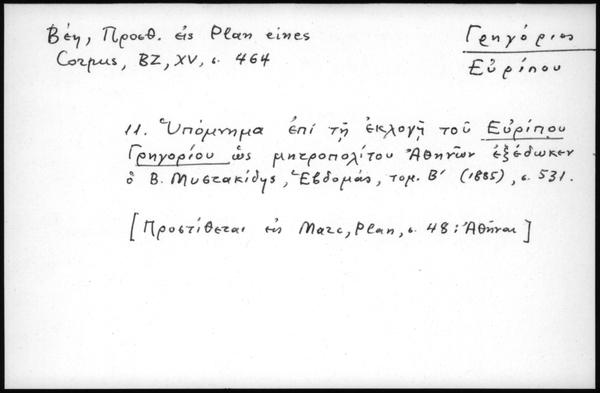 Βέη, Προσθ. εἰς Plan eines
Corpus, BZ, XV, σ. 464
Γρηγόριος
Εὐρίπου
11. Ὑπόμνημα ἐπί τῇ ἐκλογῇ τοῦ Εὐρίπου
Γρηγορίου ὡς μητροπολίτου Ἀθηνῶν ἐξέδωκεν
ὁ Β. Μυστακίδης, Ἑβδομάς, τομ. Β' (1885), σ. 531.
[Προστίθεται εἰς Marc, Plan, σ. 48: Ἀθῆναι]